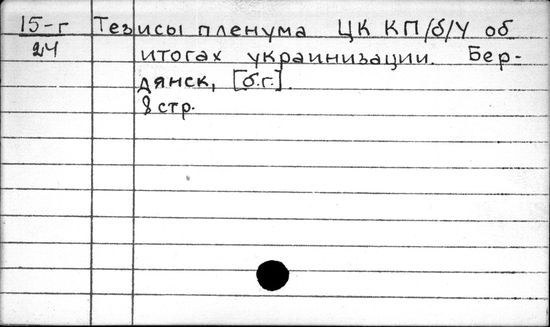 15-г Тезисы пленума ЦК КП/б/У об
24 итогах украинизации. Бер-
дянск, [б.г.].
8 стр.